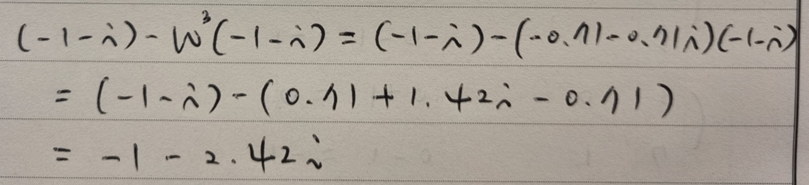 (-1-i)-W³(-1-i)=(-1-i)-(-0.71-0.71i)(-1-i)
=(-1-i)-(0.71+1.42i-0.71)
=-1-2.42i